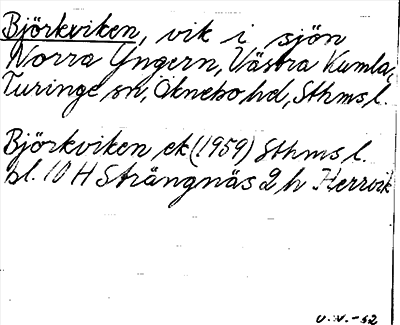 Björkviken, vik i sjön
Norra Yngern, Västra Kumla,
Turinge sn, Öknebo hd, Sthms l.
Björkviken ek (1959) Sthms l.
bl. 10 H Strängnäs 2 h Herrvik
U.V.-62